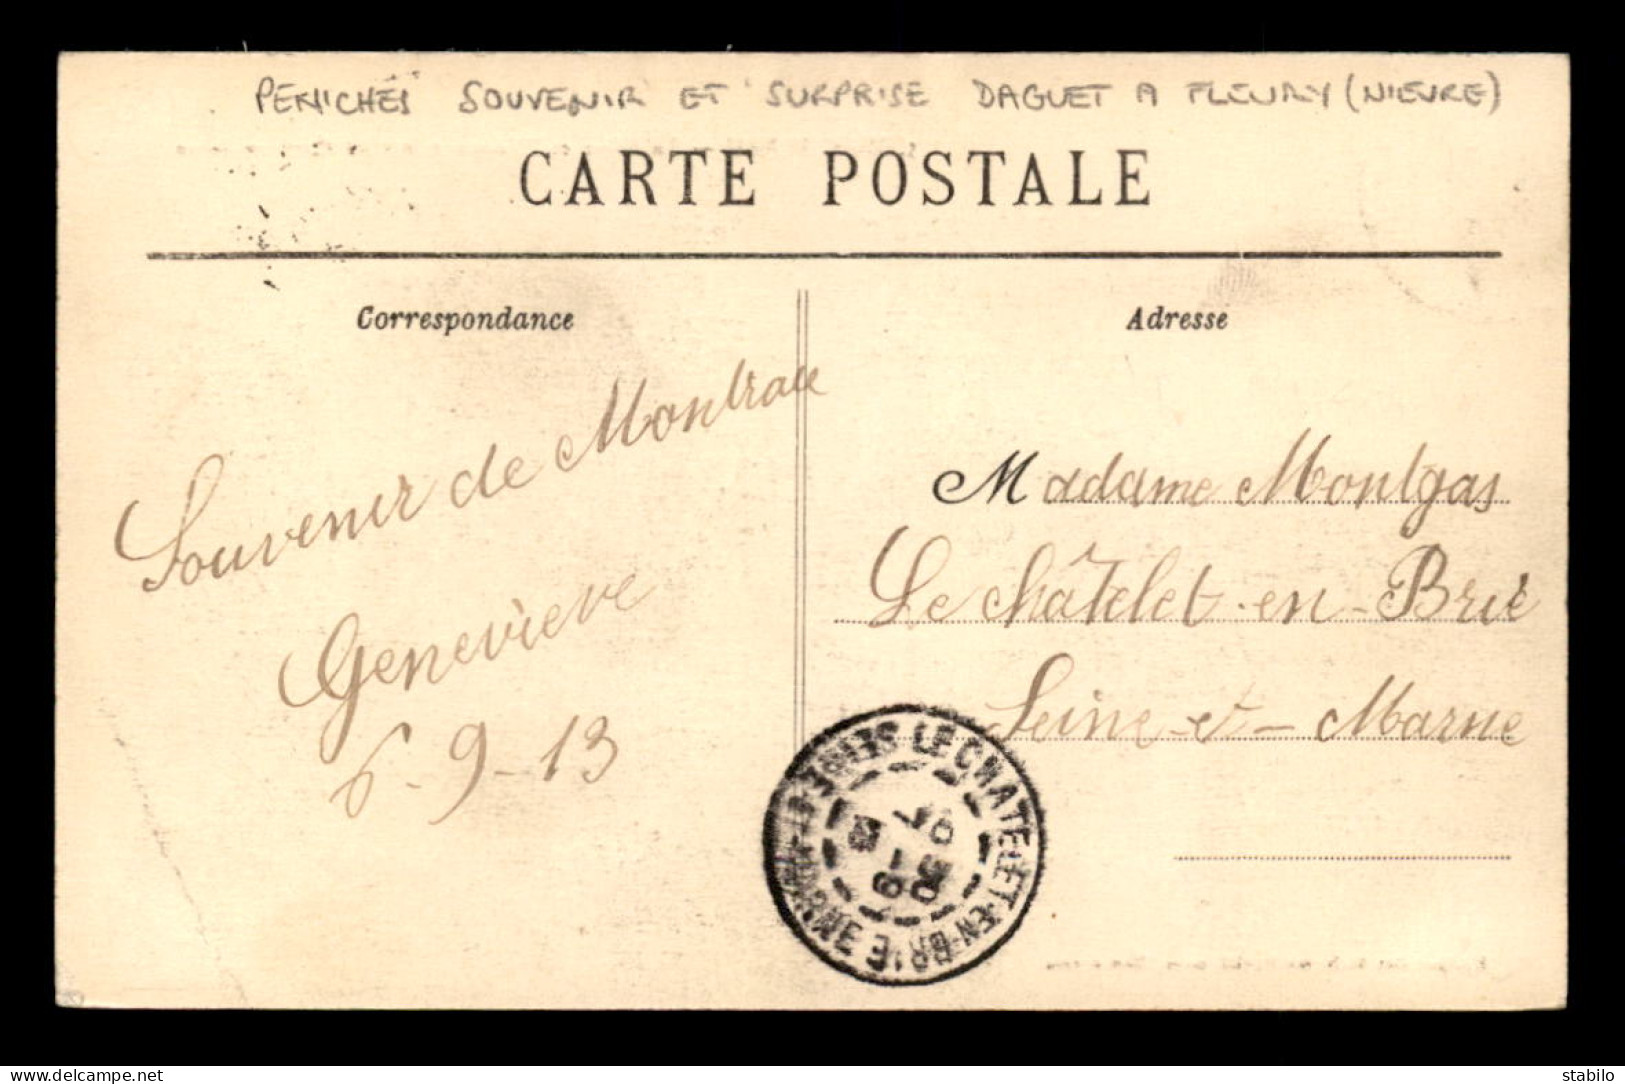 PENICHES SOUVENIR ET SURPRISE DAGUET A FLEURY (NIEVRE)
CARTE POSTALE
Correspondance
Adresse
Souvenir de
Geneviève
6-9-13
Madame Montgas
Le Châtelet-en-Brie
Seine-et-Marne
LE CHATELET-EN-BRIE SEINE-ET-MARNE
www.delcampe.net
stabilo